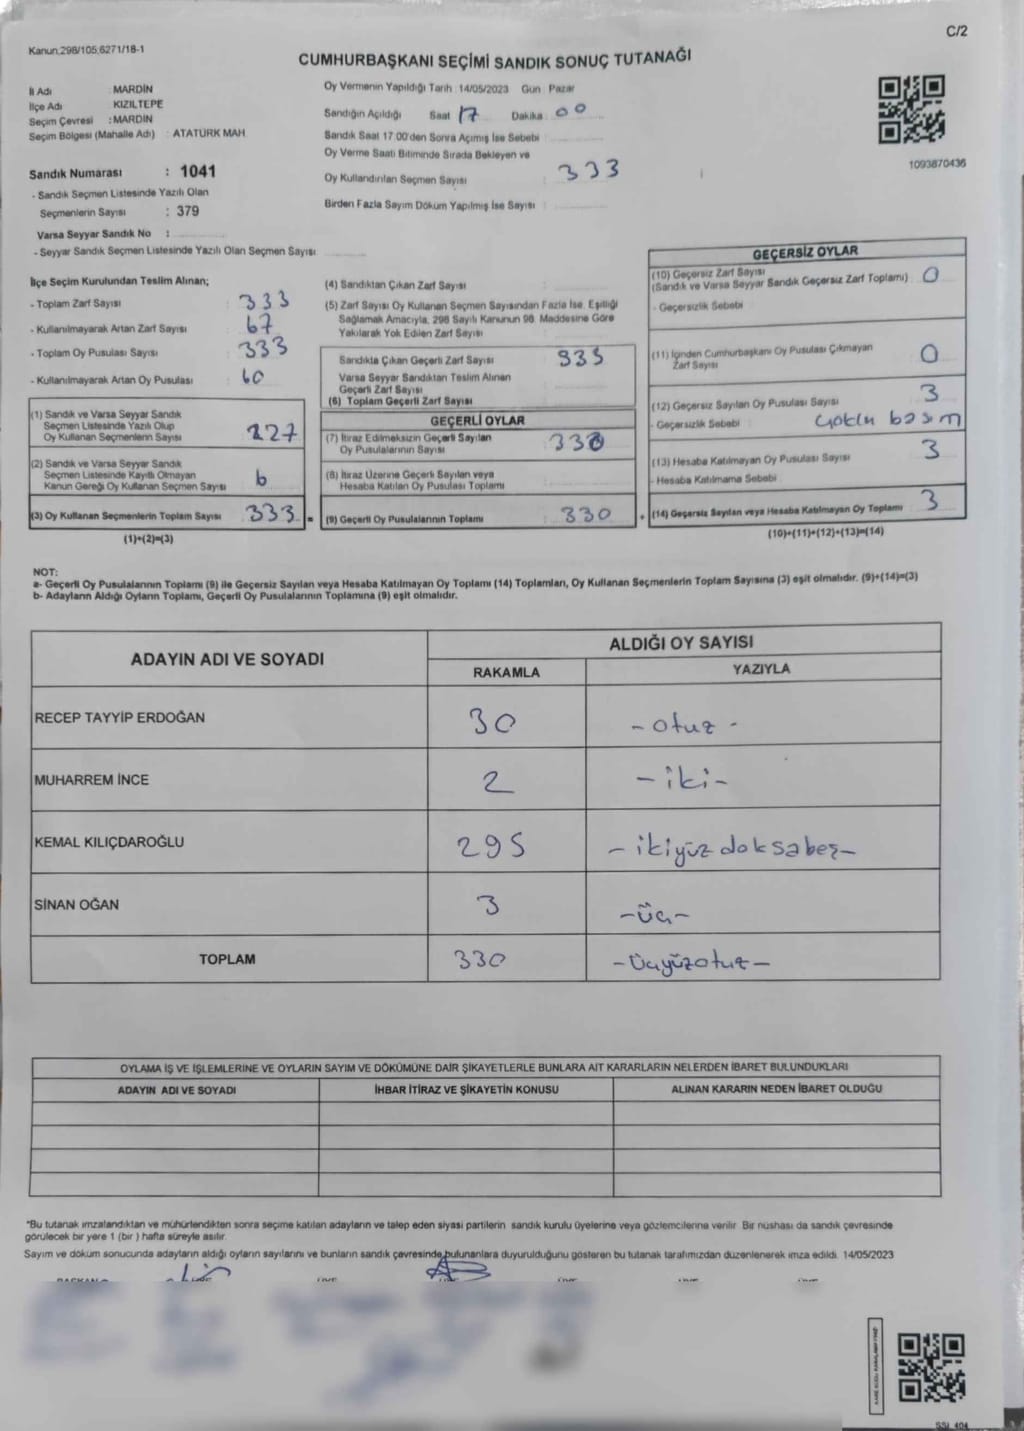 C/2
Kanun,298/105,6271/18-1
CUMHURBAŞKANI SEÇİMİ SANDIK SONUÇ TUTANAĞI
İl Adı : MARDİN
İlçe Adı : KIZILTEPE
Seçim Çevresi : MARDİN
Seçim Bölgesi (Mahalle Adı) : ATATÜRK MAH.
Sandık Numarası : 1041
- Sandık Seçmen Listesinde Yazılı Olan
Seçmenlerin Sayısı : 379
Varsa Seyyar Sandık No :
- Seyyar Sandık Seçmen Listesinde Yazılı Olan Seçmen Sayısı
Oy Vermenin Yapıldığı Tarih 14/05/2023 Gün Pazar
Sandığın Açıldığı Saat 17 Dakika 00
Sandık Saat 17.00'den Sonra Açımış İse Sebebi
Oy Verme Saati Bitiminde Sırada Bekleyen ve
Oy Kullandırılan Seçmen Sayısı 333
Birden Fazla Sayım Döküm Yapılmış İse Sayısı
1093870436
İlçe Seçim Kurulundan Teslim Alınan;
- Toplam Zarf Sayısı : 333
- Kullanılmayarak Artan Zarf Sayısı : 67
- Toplam Oy Pusulası Sayısı : 333
- Kullanılmayarak Artan Oy Pusulası : 60
(1) Sandık ve Varsa Seyyar Sandık
Seçmen Listesinde Yazılı Olup
Oy Kullanan Seçmenlerin Sayısı 227
(2) Sandık ve Varsa Seyyar Sandık
Seçmen Listesinde Kayıtlı Olmayan
Kanun Gereği Oy Kullanan Seçmen Sayısı 6
(3) Oy Kullanan Seçmenlerin Toplam Sayısı 333 =
(1)+(2)=(3)
(4) Sandıktan Çıkan Zarf Sayısı :
(5) Zarf Sayısı Oy Kullanan Seçmen Sayısından Fazla İse, Eşitliği
Sağlamak Amacıyla, 298 Sayılı Kanunun 98. Maddesine Göre
Yakılarak Yok Edilen Zarf Sayısı :
Sandıkta Çıkan Geçerli Zarf Sayısı 333
Varsa Seyyar Sandıktan Teslim Alınan
Geçerli Zarf Sayısı
(6) Toplam Geçerli Zarf Sayısı
GEÇERLİ OYLAR
(7) İtiraz Edilmeksizin Geçerli Sayılan
Oy Pusulalarının Sayısı : 330
(8) İtiraz Üzerine Geçerli Sayılan veya
Hesaba Katılan Oy Pusulası Toplamı :
(9) Geçerli Oy Pusulalarının Toplamı : 330 +
GEÇERSİZ OYLAR
(10) Geçersiz Zarf Sayısı
(Sandık ve Varsa Seyyar Sandık Geçersiz Zarf Toplamı) 0
- Geçersizlik Sebebi
(11) İçinden Cumhurbaşkanı Oy Pusulası Çıkmayan
Zarf Sayısı 0
(12) Geçersiz Sayılan Oy Pusulası Sayısı 3
- Geçersizlik Sebebi çoklu basım
(13) Hesaba Katılmayan Oy Pusulası Sayısı 3
- Hesaba Katılmama Sebebi
(14) Geçersiz Sayılan veya Hesaba Katılmayan Oy Toplamı 3
(10)+(11)+(12)+(13)=(14)
NOT:
a- Geçerli Oy Pusulalarının Toplamı (9) ile Geçersiz Sayılan veya Hesaba Katılmayan Oy Toplamı (14) Toplamları, Oy Kullanan Seçmenlerin Toplam Sayısına (3) eşit olmalıdır. (9)+(14)=(3)
b- Adayların Aldığı Oyların Toplamı, Geçerli Oy Pusulalarının Toplamına (9) eşit olmalıdır.
ADAYIN ADI VE SOYADI
ALDIĞI OY SAYISI
RAKAMLA YAZIYLA
RECEP TAYYİP ERDOĞAN 30 - otuz -
MUHARREM İNCE 2 - iki -
KEMAL KILIÇDAROĞLU 295 - ikiyüz doksabeş -
SİNAN OĞAN 3 - üç -
TOPLAM 330 - Üçyüzotuz -
OYLAMA İŞ VE İŞLEMLERİNE VE OYLARIN SAYIM VE DÖKÜMÜNE DAİR ŞİKAYETLERLE BUNLARA AİT KARARLARIN NELERDEN İBARET BULUNDUKLARI
ADAYIN ADI VE SOYADI İHBAR İTİRAZ VE ŞİKAYETİN KONUSU ALINAN KARARIN NEDEN İBARET OLDUĞU
*Bu tutanak imzalandıktan ve mühürlendikten sonra seçime katılan adayların ve talep eden siyasi partilerin sandık kurulu üyelerine veya gözlemcilerine verilir. Bir nüshası da sandık çevresinde
görülecek bir yere 1 (bir) hafta süreyle asılır.
Sayım ve döküm sonucunda adayların aldığı oyların sayılarını ve bunların sandık çevresinde bulunanlara duyurulduğunu gösteren bu tutanak tarafımızdan düzenlenerek imza edildi. 14/05/2023